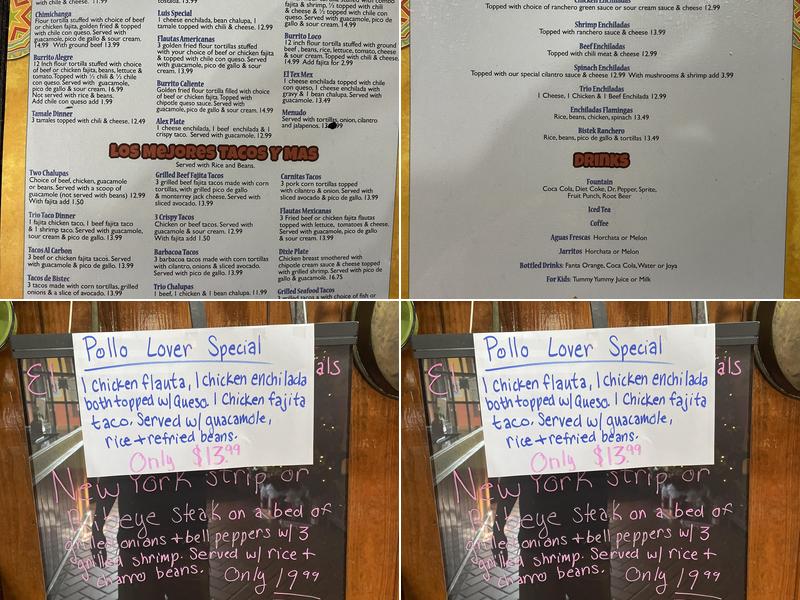 Chimichanga
Flour tortilla stuffed with choice of
beef or chicken fajita, golden fried & topped
with chile con queso. Served with
guacamole, pico de gallo & sour cream.
14.99 With ground beef 13.99
Burrito Alegre
12 inch flour tortilla stuffed with choice
of beef or chicken fajita, beans, lettuce &
tomato. Topped with ½ chili & ½ chile
con queso. Served with guacamole,
pico de gallo & sour cream. 16.99
Not served with rice & beans.
Add chile con queso add 1.99
Tamale Dinner
3 tamales topped with chili & cheese. 12.49
Luis Special
1 cheese enchilada, bean chalupa, 1
tamale topped with chili & cheese. 12.99
Flautas Americanas
3 golden fried flour tortillas stuffed
with your choice of beef or chicken fajita
& topped with chile con queso. Served
with guacamole, pico de gallo & sour
cream. 13.99
Burrito Caliente
Golden fried flour tortilla filled with choice
of beef or chicken fajita. Topped with
chipotle queso sauce. Served with
guacamole, pico de gallo & sour cream. 14.99
Alex Plate
1 cheese enchilada, 1 beef enchilada & 1
crispy taco. Served with guacamole. 12.99
fajita & shrimp. ½ topped with chili con
& cheese & ½ topped with chile con
queso. Served with guacamole, pico de
gallo & sour cream. 14.99
Burrito Loco
12 inch flour tortilla stuffed with ground
beef, beans, rice, lettuce, tomato, cheese
& sour cream. Topped with chili & cheese.
14.99 Add fajita for 2.99
El Tex Mex
1 cheese enchilada topped with chile
con queso, 1 cheese enchilada with
gravy & 1 bean chalupa. Served with
guacamole. 13.49
Menudo
Served with tortillas, onion, cilantro
and jalapenos.
LOS MEJORES TACOS Y MAS
Served with Rice and Beans.
Two Chalupas
Choice of beef, chicken, guacamole
or beans. Served with a scoop of
guacamole (not served with beans) 12.99
With fajita add 1.50
Trio Taco Dinner
1 fajita chicken taco, 1 beef fajita taco
& 1 shrimp taco. Served with guacamole,
sour cream & pico de gallo. 13.99
Tacos Al Carbon
3 beef or chicken fajita tacos. Served
with guacamole & pico de gallo. 13.99
Tacos de Bistec
3 tacos made with corn tortillas, grilled
onions & a slice of avocado. 13.99
Grilled Beef Fajita Tacos
3 grilled beef fajita tacos made with corn
tortillas, with grilled pico de gallo
& monterrey jack cheese. Served with
sliced avocado. 13.99
3 Crispy Tacos
Chicken or beef. Served with
guacamole & sour cream. 12.99
With fajita add 1.50
Barbacoa Tacos
3 barbacoa tacos made with corn tortillas
with cilantro, onions & sliced avocado.
Served with pico de gallo. 13.99
Trio Chalupas
1 beef, 1 chicken & 1 bean chalupa. 11.99
Carnitas Tacos
3 pork corn tortillas topped
with cilantro & onion. Served with
sliced avocado & pico de gallo. 13.99
Flautas Mexicanas
3 Fried beef or chicken fajita flautas
topped with lettuce, tomatoes & cheese.
Served with guacamole, pico de gallo
& sour cream. 13.99
Dixie Plate
Chicken breast smothered with
chipotle cream sauce & cheese topped
with grilled shrimp. Served with pico de
gallo & guacamole. 16.75
Grilled Seafood Tacos
3 grilled tacos with a choice of fish or
Topped with choice of ranchero green sauce or sour cream sauce & cheese 12.99
Shrimp Enchiladas
Topped with ranchero sauce & cheese 13.99
Beef Enchiladas
Topped with chili meat & cheese 12.99
Spinach Enchiladas
Topped with our special cilantro sauce & cheese 12.99 With mushrooms & shrimp add 3.99
Trio Enchiladas
1 Cheese, 1 Chicken & 1 Beef Enchilada 12.99
Enchiladas Flamingas
Rice, beans, chicken, spinach 13.49
Bistek Ranchero
Rice, beans, pico de gallo & tortillas 13.49
DRINKS
Fountain
Coca Cola, Diet Coke, Dr. Pepper, Sprite,
Fruit Punch, Root Beer
Iced Tea
Coffee
Aguas Frescas Horchata or Melon
Jarritos Horchata or Melon
Bottled Drinks: Fanta Orange, Coca Cola, Water or Joya
For Kids: Tummy Yummy Juice or Milk
Pollo Lover Special
1 Chicken flauta, 1 Chicken enchilada
both topped w/ Queso. 1 Chicken fajita
taco. Served w/ guacamole,
rice + refried beans.
Only $13.99
New York Strip or
Ribeye Steak on a bed of
grilled onions + bell peppers w/ 3
grilled shrimp. Served w/ rice +
charro beans. Only 19.99
Pollo Lover Special
1 Chicken flauta, 1 Chicken enchilada
both topped w/ Queso. 1 Chicken fajita
taco. Served w/ guacamole,
rice + refried beans.
Only $13.99
New York Strip or
Ribeye Steak on a bed of
grilled onions + bell peppers w/ 3
grilled shrimp. Served w/ rice +
charro beans. Only 19.99